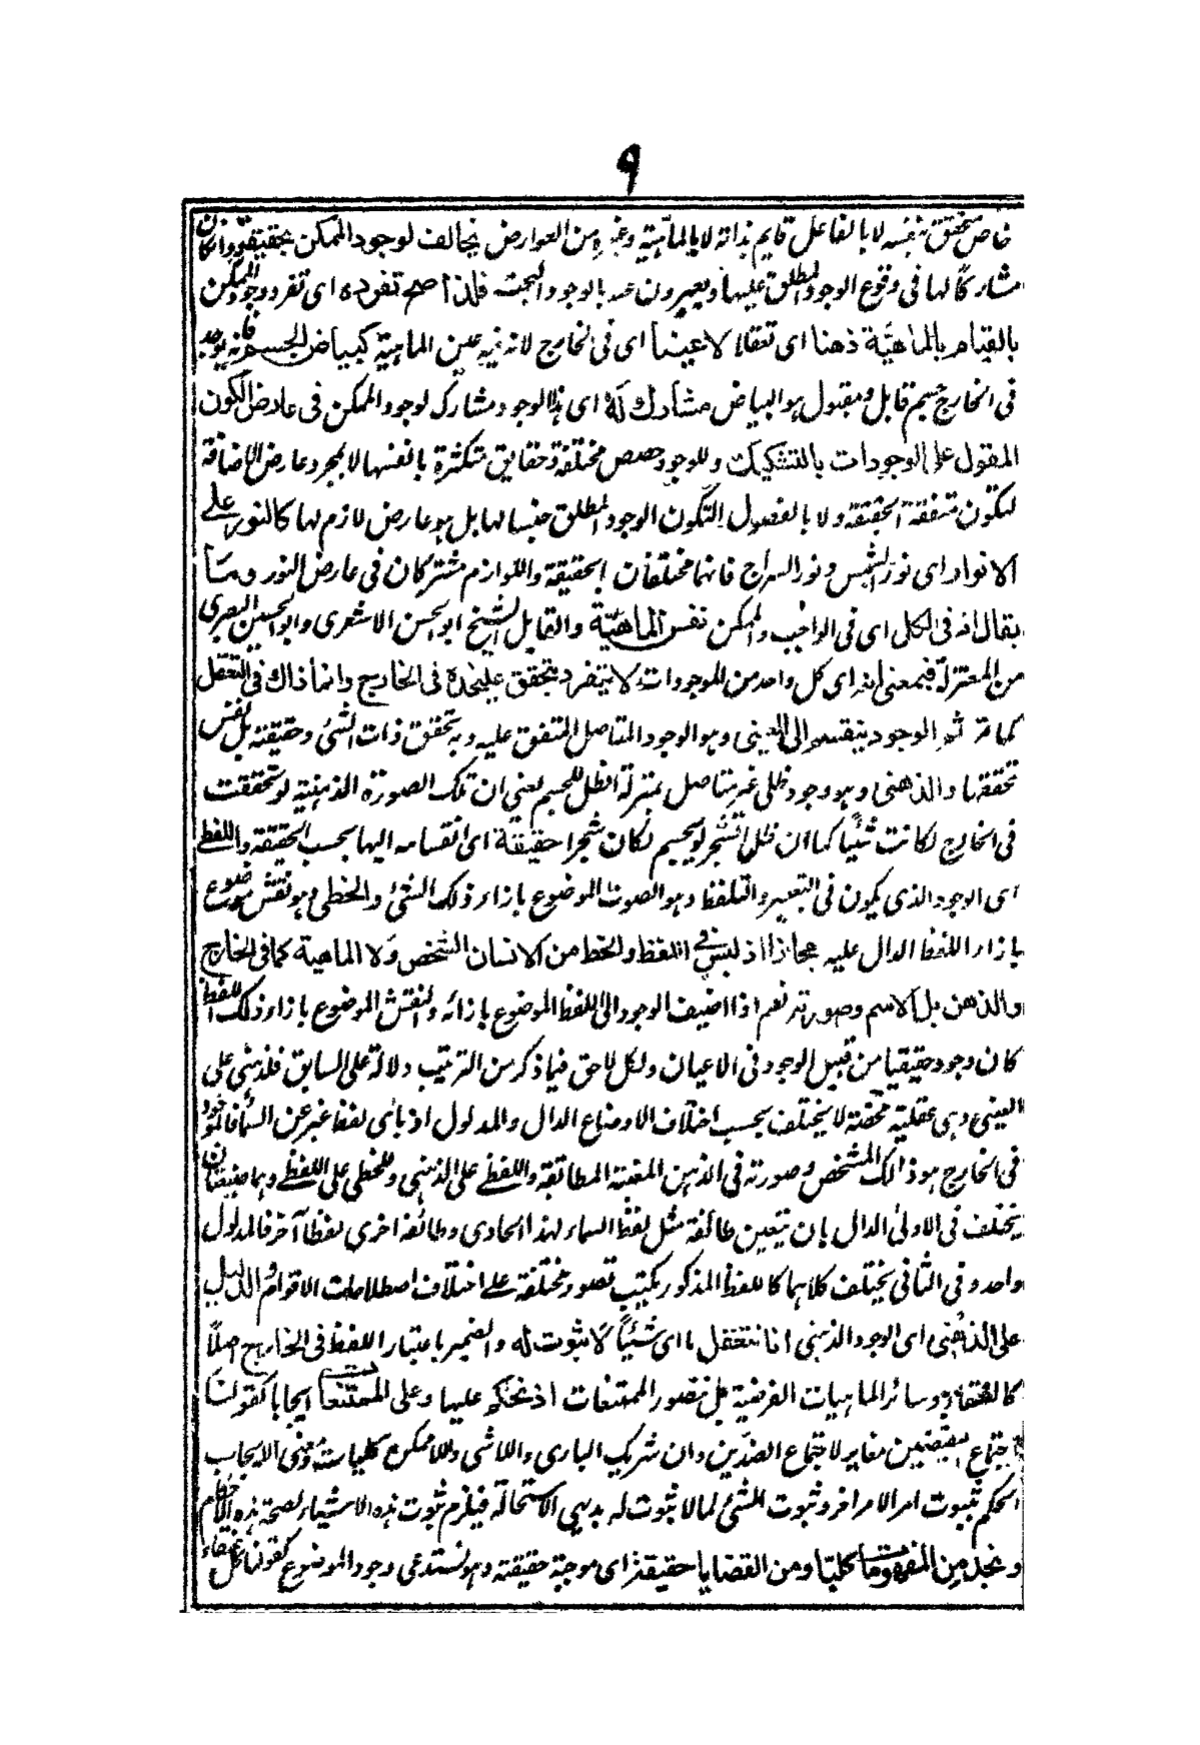 ٩
خاص متحقق بنفسه لا بالفاعل قايم بذاته لا بالماهية وغيره من العوارض يخالف لوجود الممكن بحقيقته وان كان
مشاركا لها فى وقوع الوجود المطلق عليها ويعبرون عنه بالوجود البحت فلذا صح تفرده اى تفرد وجود الممكن
بالقيام بالماهيَّة ذهنا اى تعقلا لا عينا اى فى الخارج لانه فيه عين الماهية كبياض الجسم فانه يوجد
فى الخارج جسم قابل ومقبول هو البياض مشارك لَهُ اى هذا الوجود مشارك لوجود الممكن فى عارض الكون
المقول على الوجودات بالتشكيك وللوجود حصص مختلفة وحقايق متكثرة بانفسها لا بمجرد عارض الاضافة
لتكون متفقة الحقيقة ولا بالفصول لتكون الوجود المطلق جنسا لها بل هو عارض لازم لها كالنور على
الانوار اى نور الشمس ونور السراج فانهما مختلفان بالحقيقة واللوازم مشتركان فى عارض النور وما
يقال انه فى الكل اى فى الواجب والممكن نفس الماهيَّة والقايل الشيخ ابو الحسن الاشعرى وابو الحسين البصرى
من المعتزلة فبمعنى انه اى كل واحد من الموجودات لا يتفرد بتحقق عليحدة فى الخارج وانما ذاك فى التعقل
كما مر ثم الوجود ينقسم الى العينى وهو الوجود المتاصل المتفق عليه وبه تحقق ذات الشئ وحقيقته بل نفس
تحققها والذهنى وهو وجود ظلى غير متاصل بمنزلة الظل للجسم يعنى ان تلك الصورة الذهنية لو تحققت
فى الخارج لكانت شيئا كما ان ظل الشجر لو تجسم لكان شجرا حقيقة اى انقسامه اليها بحسب الحقيقة واللفظى
اى الوجود الذى يكون فى التعبير والتلفظ وهو الصوت الموضوع بازاء ذلك الشئ والخطى وهو نقش موضوع
بازاء اللفظ الدال عليه مجازا اذ ليس فى اللفظ والخط من الانسان الشخص ولا الماهية كما فى الخارج
والذهن بل الاسم وصورته نعم اذا اضيف الوجود الى اللفظ الموضوع بازائه والنقش الموضوع بازاء ذلك اللفظ
كان وجود حقيقيا من قبيل الوجود فى الاعيان ولكل لاحق فيما ذكر من الترتيب دلالة على السابق فللذهنى على
العينى وهى عقلية محضة لا يختلف بحسب اختلاف الاوضاع الدال والمدلول اذ باى لفظ عبر عن السماء فالموجود
فى الخارج هو ذالك المشخص وصورته فى الذهن المعينة المطابقة واللفظ على الذهنى وللخطى على اللفظ وهما وضعيتان
يختلف فى الاولى الدال بان تتعين طائفة مثل لفظ السماء لهذا الحادى وطائفة اخرى لفظا آخر فالمدلول
واحد وفى الثانى يختلف كلاهما كاللفظ المذكور يكتب بصور مختلفة على اختلاف اصطلاحات الاقوام والدليل
على الذهنى اى الوجود الذهنى انا نتعقل ما اى شيئا لا ثبوت له والضمير باعتبار اللفظ فى الخارج اصلا
كالعنقاء وسائر الماهيات الفرضية بل نتصور الممتنعات اذ نحكم عليها وعلى الممتنعا ايجابا كقولنا
اجتماع النقيضين مغاير لاجتماع الضدين وان شريك البارى واللاشى واللاممكن كليات ومعنى الايجاب
الحكم بثبوت امر الامر اخر وثبوت الشئ لما لا ثبوت له بديهى الاستحالة فيلزم ثبوت هذه الاشياء لصحة هذه الاحكام
ونجد من المفهومات كليا ومن القضايا حقيقة اى موجبة حقيقة وهو تستدعى وجود الموضوع كقولنا كل عنقاء